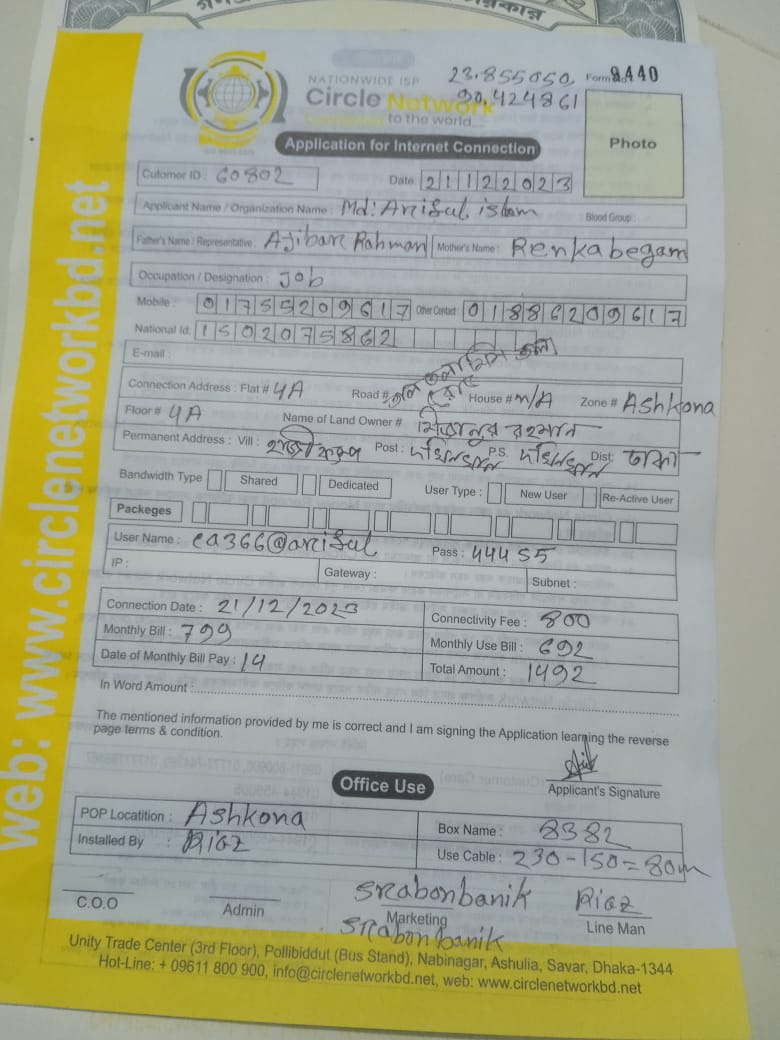 NATIONWIDE ISP
Circle Network
to the world...
23.855050,
90.424861
Form 9440
Photo
Application for Internet Connection
Cutomer ID : 60802
Date: 21122023
Applicant Name / Organization Name : Md: Ariful islam
Blood Group :
Father's Name / Representative : Ajibar Rahman Mother's Name : Renkabegam
Occupation / Designation : Job
Mobile : 01755209617 Other Contact : 01886209617
National Id: 1502075862
E-mail :
Connection Address : Flat # 4A Road # House # N/A Zone # Ashkona
Floor # 4A Name of Land Owner # মিজানুর রহমান
Permanent Address : Vill : হাজী ক্যাম্প Post : দক্ষিনখান P.S. দক্ষিনখান Dist: ঢাকা
Bandwidth Type Shared Dedicated User Type : New User Re-Active User
Packeges
User Name : ca366@ariful Pass : 44455
IP : Gateway : Subnet :
Connection Date : 21/12/2023 Connectivity Fee : 800
Monthly Bill : 799 Monthly Use Bill : 692
Date of Monthly Bill Pay : 14 Total Amount : 1492
In Word Amount :
The mentioned information provided by me is correct and I am signing the Application learning the reverse
page terms & condition.
Applicant's Signature
Office Use
POP Locatition : Ashkona Box Name : 8382
Installed By : Riaz Use Cable : 230-150=80m
C.O.O Admin Srabonbanik Riaz
Marketing Line Man
Srabonbanik
Unity Trade Center (3rd Floor), Pollibiddut (Bus Stand), Nabinagar, Ashulia, Savar, Dhaka-1344
Hot-Line: + 09611 800 900, info@circlenetworkbd.net, web: www.circlenetworkbd.net
web: www.circlenetworkbd.net